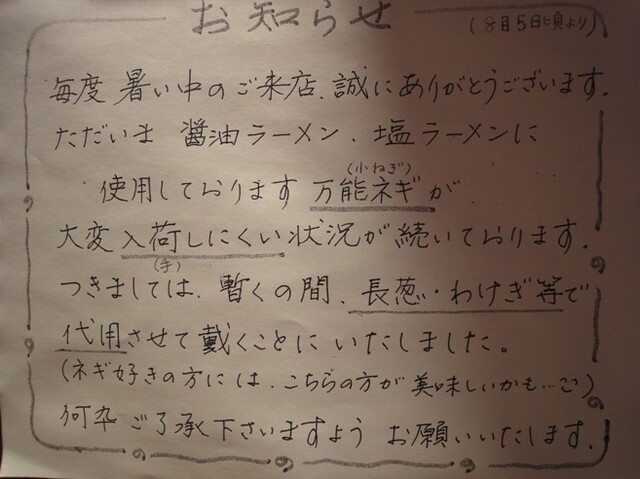 お知らせ
(8月5日頃より)
毎度 暑い中のご来店、誠にありがとうございます。
ただいま 醤油ラーメン、塩ラーメンに
(小ねぎ)
使用しております 万能ネギが
大変 入荷しにくい状況が続いております。
つきましては、暫くの間、長葱・わけぎ等で
代用させて戴くことに いたしました。
(ネギ好きの方には、こちらの方が 美味しいかも…)
何卒 ご了承下さいますよう お願いいたします。